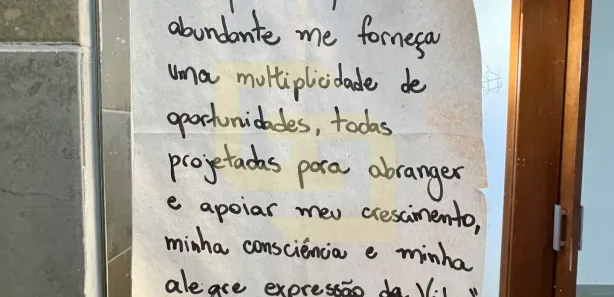 abundante me forneça
uma multiplicidade de
oportunidades, todas
projetadas para abranger
e apoiar meu crescimento,
minha consciência e minha
alegre expressão da